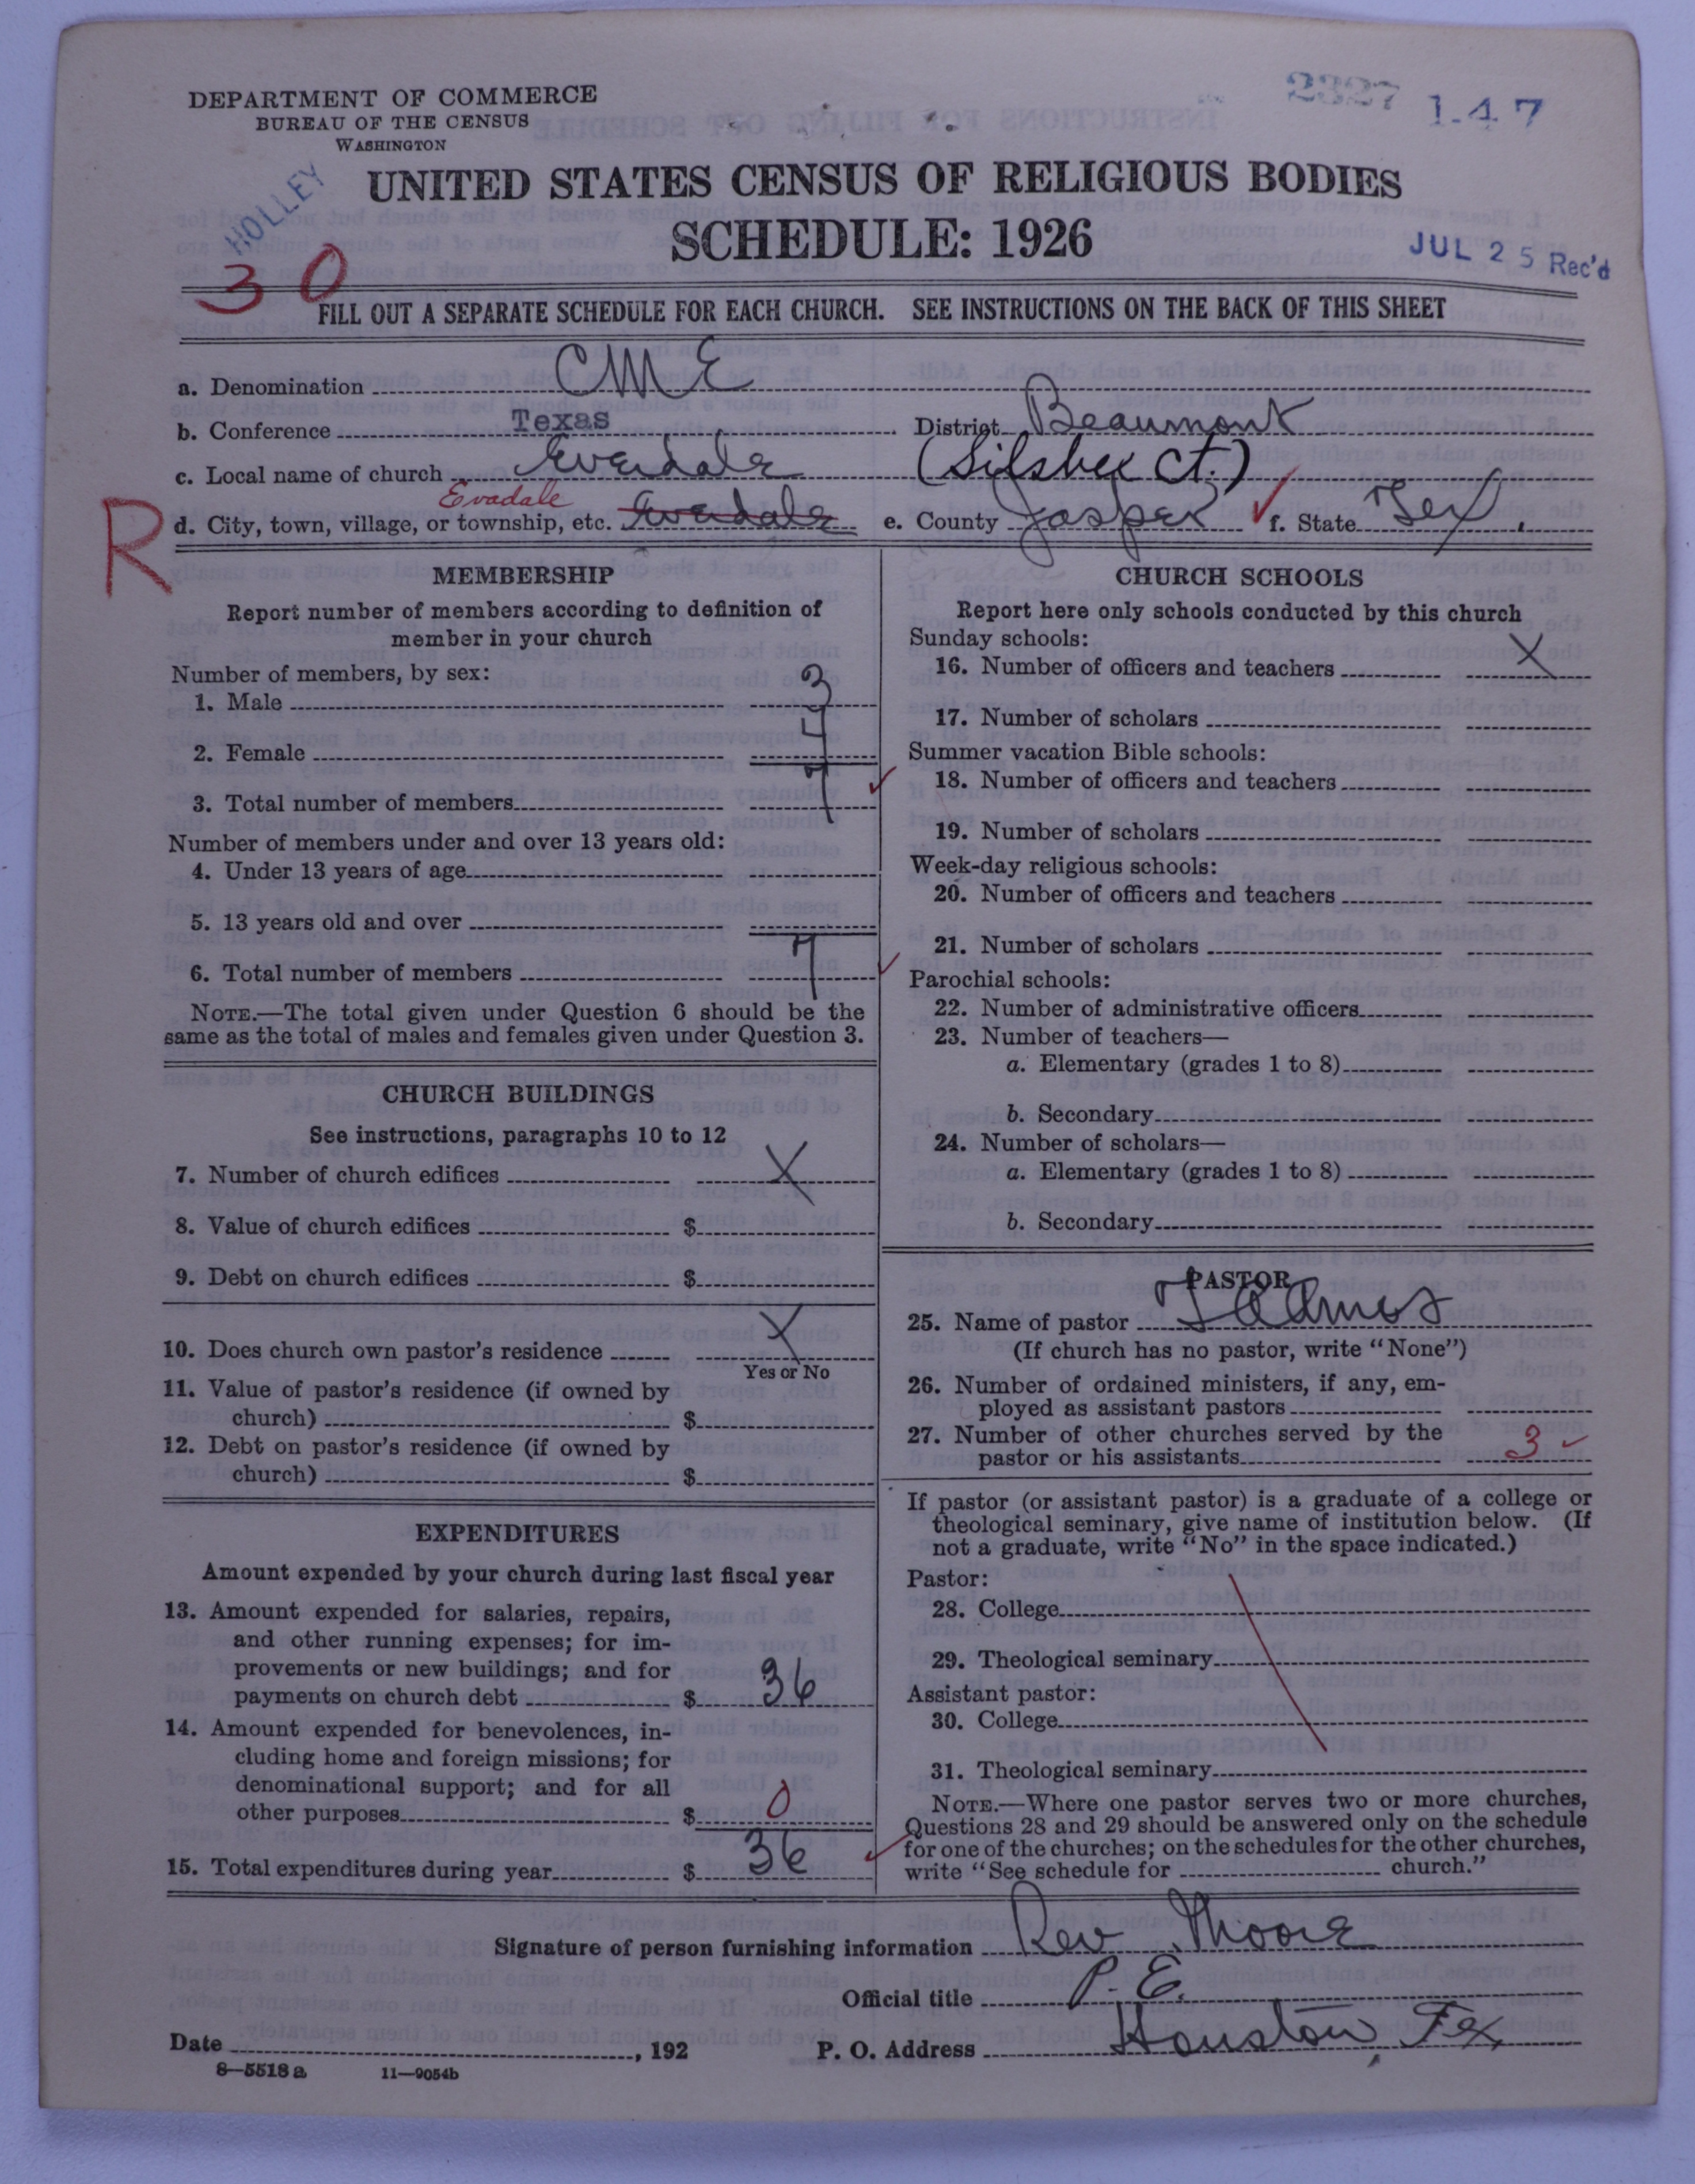 DEPARTMENT OF COMMERCE
BUREAU OF THE CENSUS
WASHINGTON
2327 147
HOLLEY
UNITED STATES CENSUS OF RELIGIOUS BODIES
SCHEDULE: 1926
JUL 25 Rec'd
30
FILL OUT A SEPARATE SCHEDULE FOR EACH CHURCH. SEE INSTRUCTIONS ON THE BACK OF THIS SHEET
a. Denomination CME
b. Conference Texas District Beaumont
c. Local name of church Everdale (Silsbee Ct.)
Evadale
R d. City, town, village, or township, etc. Everdale e. County Jasper ✓ f. State Tex.
MEMBERSHIP
Report number of members according to definition of
member in your church
Number of members, by sex:
1. Male 3
2. Female 4
3. Total number of members 7 ✓
Number of members under and over 13 years old:
4. Under 13 years of age
5. 13 years old and over
6. Total number of members 7 ✓
NOTE.—The total given under Question 6 should be the
same as the total of males and females given under Question 3.
CHURCH BUILDINGS
See instructions, paragraphs 10 to 12
7. Number of church edifices X
8. Value of church edifices $
9. Debt on church edifices $
10. Does church own pastor's residence X
Yes or No
11. Value of pastor's residence (if owned by
church) $
12. Debt on pastor's residence (if owned by
church) $
EXPENDITURES
Amount expended by your church during last fiscal year
13. Amount expended for salaries, repairs,
and other running expenses; for im-
provements or new buildings; and for
payments on church debt $ 36
14. Amount expended for benevolences, in-
cluding home and foreign missions; for
denominational support; and for all
other purposes $ 0
15. Total expenditures during year $ 36 ✓
CHURCH SCHOOLS
Report here only schools conducted by this church
Sunday schools:
16. Number of officers and teachers X
17. Number of scholars
Summer vacation Bible schools:
18. Number of officers and teachers
19. Number of scholars
Week-day religious schools:
20. Number of officers and teachers
21. Number of scholars
Parochial schools:
22. Number of administrative officers
23. Number of teachers—
a. Elementary (grades 1 to 8)
b. Secondary
24. Number of scholars—
a. Elementary (grades 1 to 8)
b. Secondary
PASTOR
25. Name of pastor
(If church has no pastor, write "None")
26. Number of ordained ministers, if any, em-
ployed as assistant pastors
27. Number of other churches served by the
pastor or his assistants 3 ✓
If pastor (or assistant pastor) is a graduate of a college or
theological seminary, give name of institution below. (If
not a graduate, write "No" in the space indicated.)
Pastor:
28. College
29. Theological seminary
Assistant pastor:
30. College
31. Theological seminary
NOTE.—Where one pastor serves two or more churches,
Questions 28 and 29 should be answered only on the schedule
for one of the churches; on the schedules for the other churches,
write "See schedule for church."
Signature of person furnishing information Rev Moore
Official title P. E.
Date , 192 P. O. Address Houston, Tex
8—5518a 11—9054b